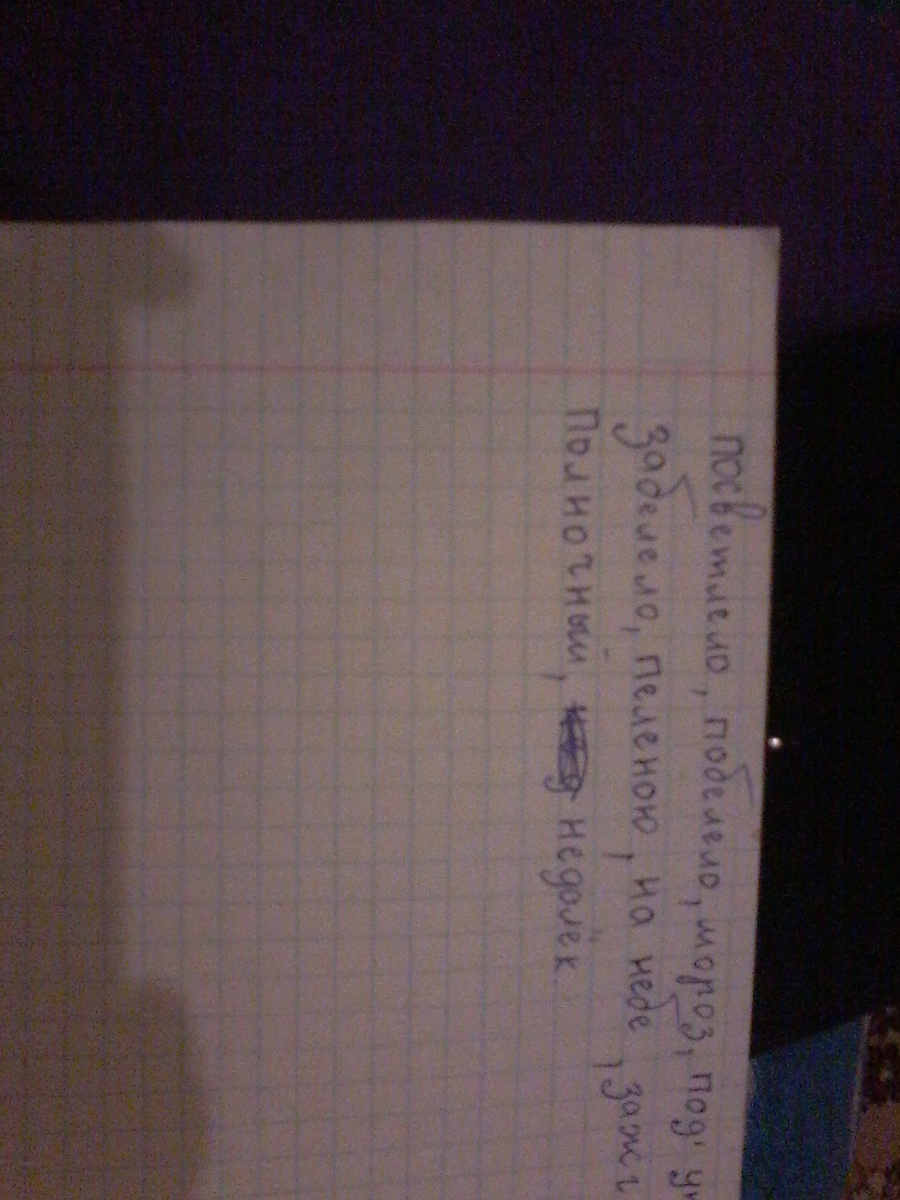 посветлело, побелело, мороз, под
забелело, пеленою, на небе, заж
Полночный, недолёк